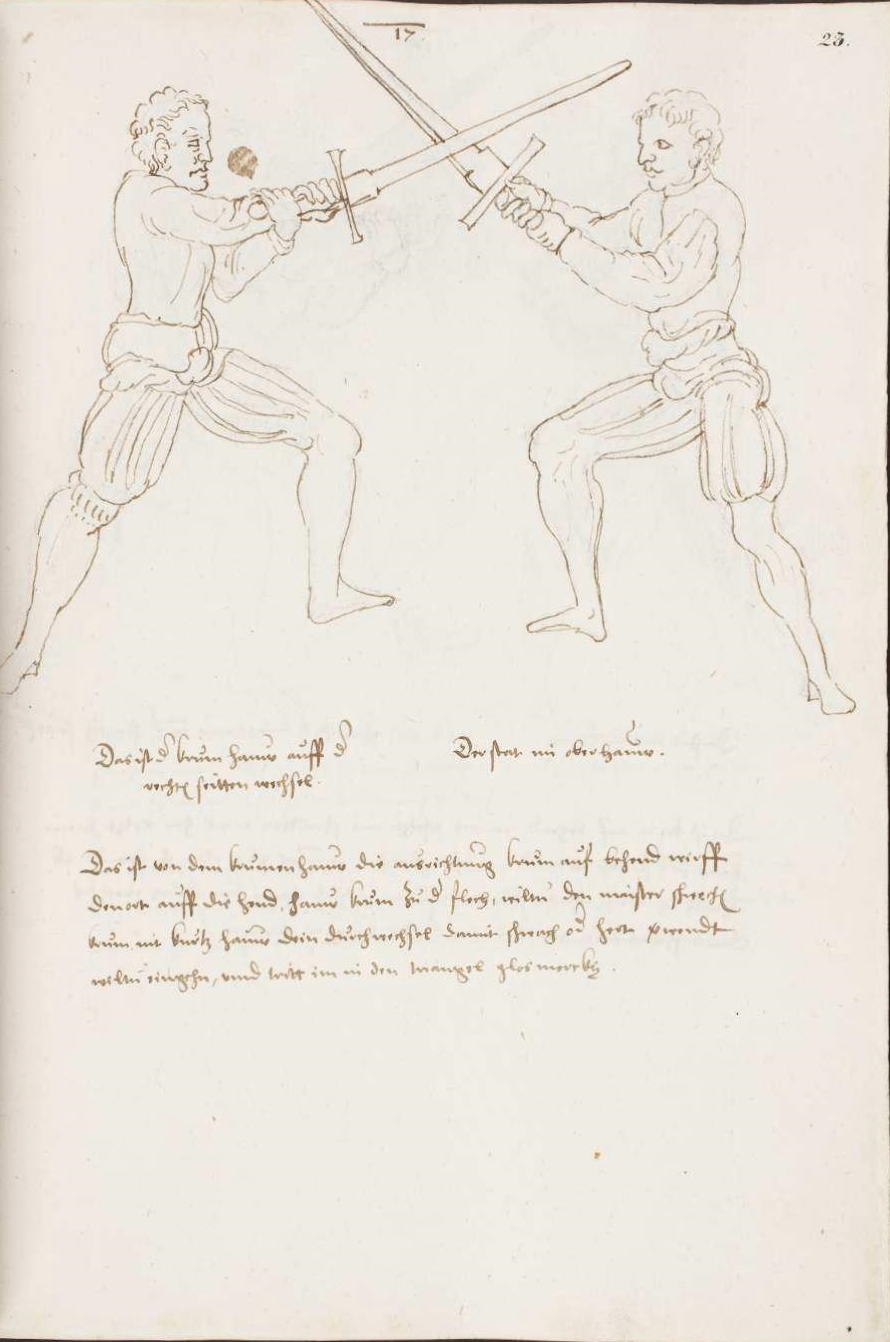 17
23.
Das ist d krum hauw auff d
rechtē seitten wechsel.
Der stat im oberhauw.
Das ist von dem krumen hauw die ausrichtung krum auf behend wirff
den ort auff die hend, hauw krum zu d flech, wiltu den maister
krum nit kurtz hauw dein durchwechsel damit schwach od hert wendt
wiltu eingehn, vnnd tritt im in den triangel glos merckh.